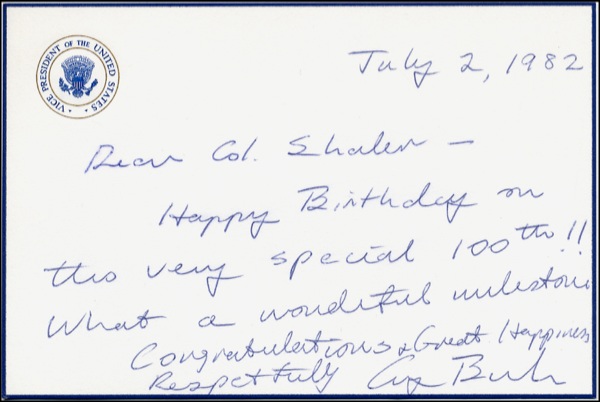 VICE PRESIDENT OF THE UNITED STATES
July 2, 1982
Dear Col. Shaler —
Happy Birthday on
this very special 100th!!
What a wonderful milestone
Congratulations & Great Happiness
Respectfully Bush